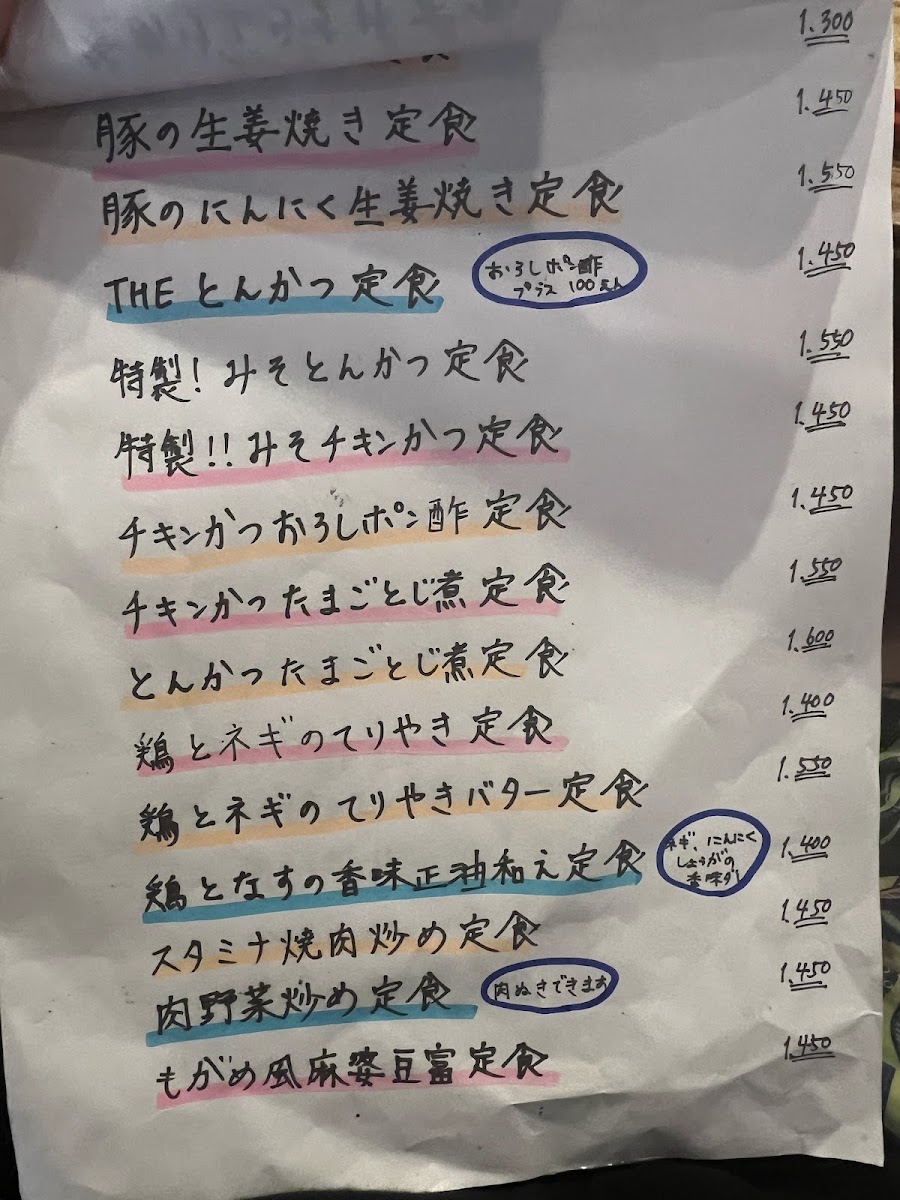 食 1.300
豚の生姜焼き定食 1.450
豚のにんにく生姜焼き定食 1.550
THE とんかつ定食 1.450
おろしポン酢
プラス 100えん
特製!みそとんかつ定食 1.550
特製!!みそチキンかつ定食 1.450
チキンかつおろしポン酢定食 1.450
チキンかつたまごとじ煮定食 1.550
とんかつたまごとじ煮定食 1.600
鶏とネギのてりやき定食 1.400
鶏とネギのてりやきバター定食 1.550
鶏となすの香味正油和え定食 1.400
ネギ、にんにく
しょうがの
香味ダレ
スタミナ焼肉炒め定食 1.450
肉野菜炒め定食 1.450
肉ぬきできます
もがめ風麻婆豆富定食 1.450